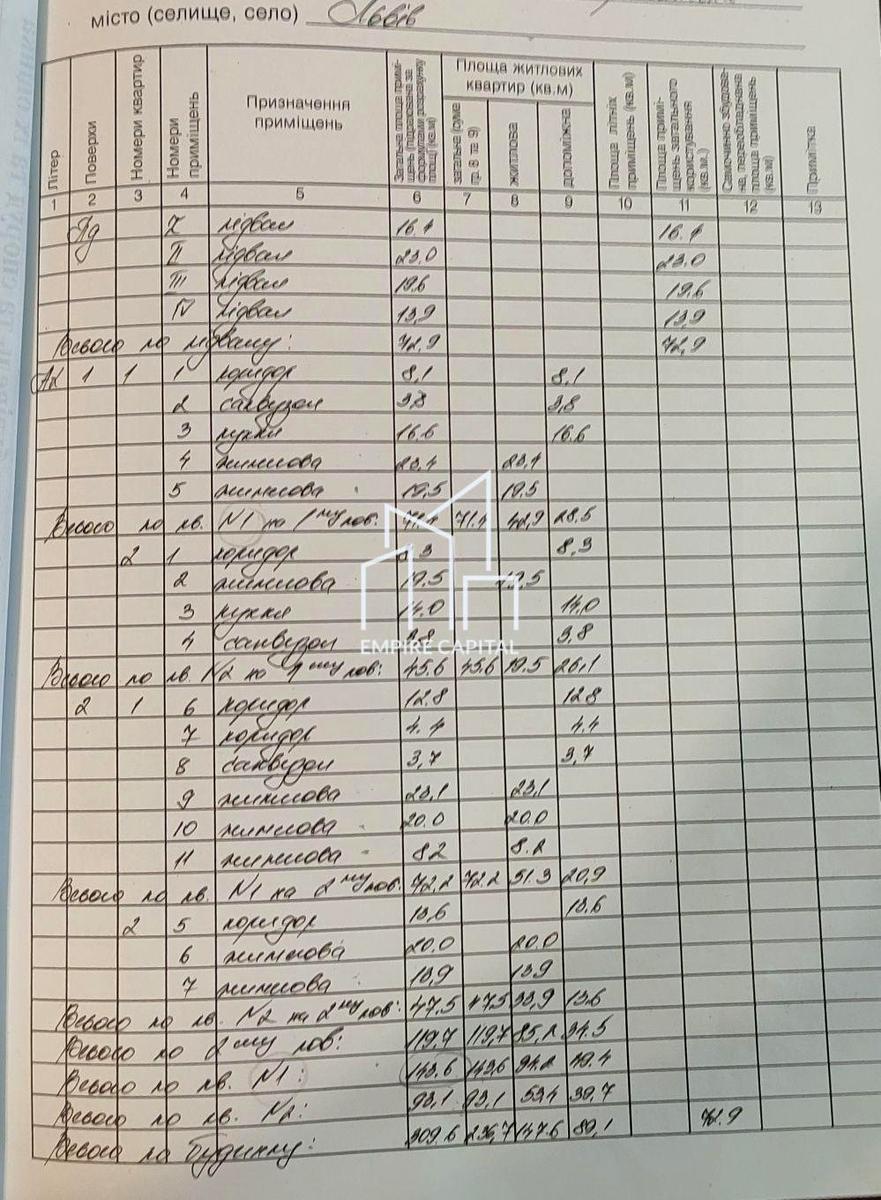 місто (селище, село) Львів
Літер Поверхи Номери квартир Номери приміщень Призначення приміщень Загальна площа приміщень (підрахована за формулами розрахунку площі) (кв.м) Площа житлових квартир (кв.м) загальна (сума гр. 8 та 9) житлова допоміжна Площа літніх приміщень (кв.м) Площа приміщень загального користування (кв.м.) Самочинно збудована, переобладнана площа приміщень (кв.м) Примітка
1 2 3 4 5 6 7 8 9 10 11 12 13
Пд I підвал 16.1 16.1
II підвал 23.0 23.0
III підвал 19.6 19.6
IV підвал 13,9 13,9
Всього по підвалу: 72,9 72,9
1 1 1 коридор 8,1 8,1
2 санвузол 3,8 3,8
3 кухня 16.6 16.6
4 житлова 23,4 23,4
5 житлова 19,5 19.5
Всього по кв. N1 на 1му пов: 71.4 71.4 42,9 28.5
2 1 коридор 8,3 8,3
2 житлова 19.5 19,5
3 кухня 14.0 14.0
4 санвузол 3,8 3.8
EMPIRE CAPITAL
Всього по кв. N2 на 1му пов: 45.6 45.6 19.5 26,1
2 1 6 коридор 12.8 12.8
7 коридор 4.4 4.4
8 санвузол 3,7 3,7
9 житлова 23,1 23,1
10 житлова 20.0 20.0
11 житлова 8.2 8.2
Всього по кв. N1 на 2му пов: 72,2 72.2 51.3 20,9
2 5 коридор 13,6 13.6
6 житлова 20.0 20.0
7 житлова 13,9 13.9
Всього по кв. N2 на 2му пов: 47.5 47.5 33,9 13.6
Всього по 2му пов: 119.7 119,7 85,2 34.5
Всього по кв. N1: 143.6 143,6 94.2 49.4
Всього по кв. N2: 93,1 93,1 53.4 39.7
Всього по будинку: 309.6 236,7 147.6 89,1 72.9